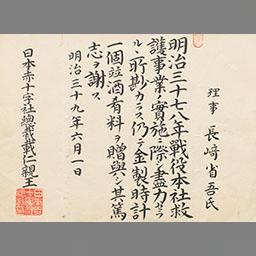 理事 長崎省吾氏
明治三十七八年戰役本社救
護事業ノ實施ニ際シ盡力セラ
ルヽ所尠カラス仍テ金製時計
一個竝酒肴料ヲ贈與シ其篤
志ヲ謝ス
明治三十九年六月一日
日本赤十字社總裁載仁親王